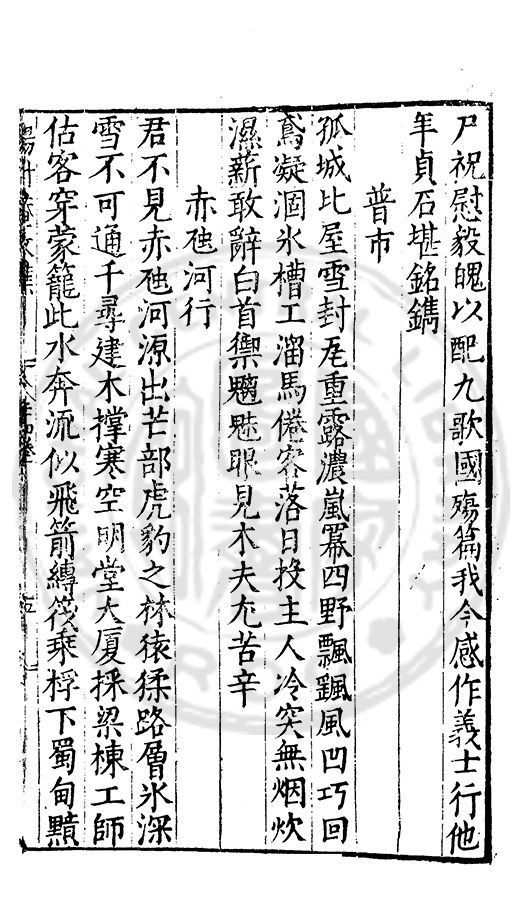 尸祝慰毅魄以配九歌國殤篇我今感作義士行他
年貞石堪銘鐫
普市
孤城比屋雪封瓦重露濃嵐冪四野飄颿風凹巧回
鳶凝涸氷槽工溜馬倦客落日投主人冷突無烟炊
濕薪敢辭白首禦魑魅眼見木夫尤苦辛
赤虺河行
君不見赤虺河源出芒部虎豹之林猿猱路層氷深
雪不可通千尋建木撐寒空明堂大厦採梁棟工師
估客穿蒙籠此水奔流似飛箭縛筏乘桴下蜀甸黰